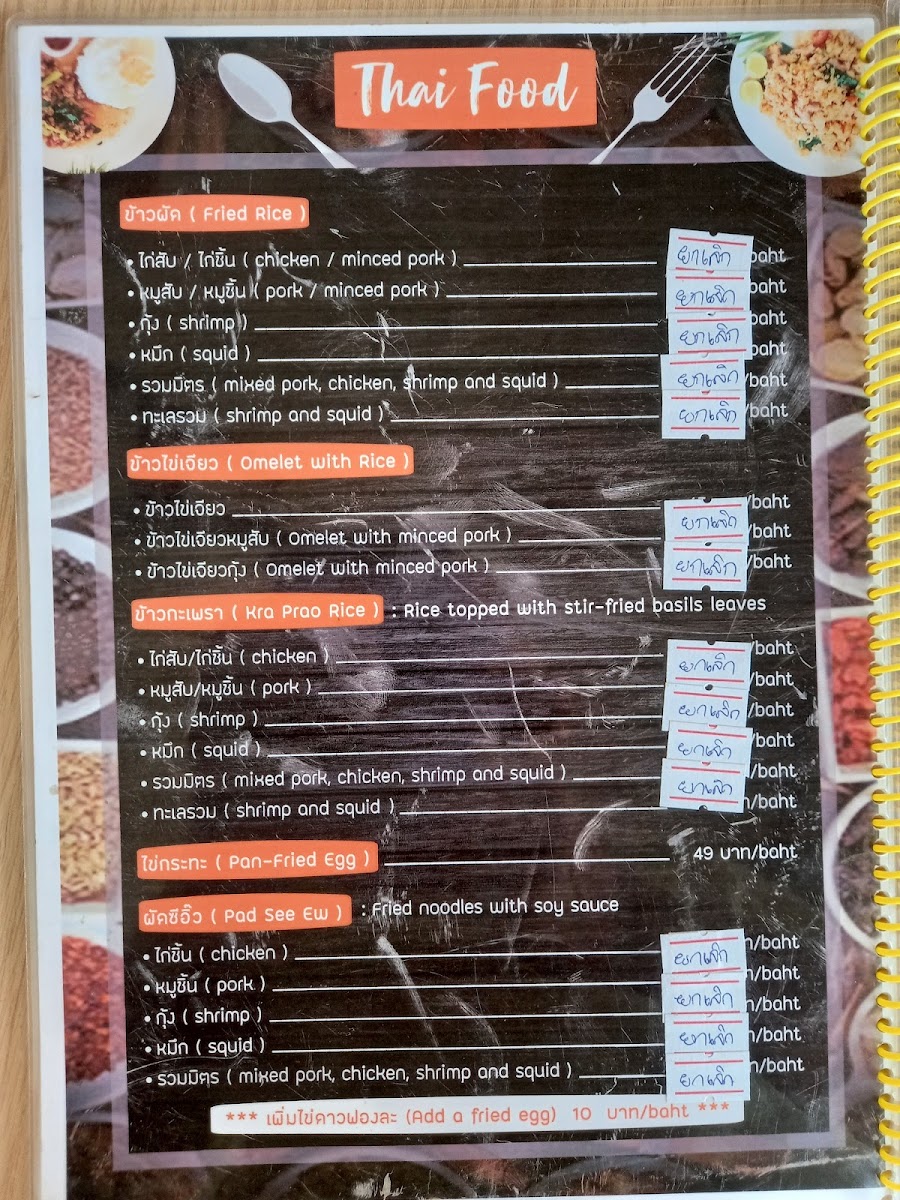 Thai Food
ข้าวผัด ( Fried Rice )
• ไก่สับ / ไก่ชิ้น ( chicken / minced pork ) ยกเลิก baht
• หมูสับ / หมูชิ้น ( pork / minced pork ) ยกเลิก baht
• กุ้ง ( shrimp ) ยกเลิก baht
• หมึก ( squid ) baht
• รวมมิตร ( mixed pork, chicken, shrimp and squid ) ยกเลิก /baht
• ทะเลรวม ( shrimp and squid ) ยกเลิก /baht
ข้าวไข่เจียว ( Omelet with Rice )
• ข้าวไข่เจียว /baht
• ข้าวไข่เจียวหมูสับ ( Omelet with minced pork ) ยกเลิก /baht
• ข้าวไข่เจียวกุ้ง ( Omelet with minced pork ) ยกเลิก /baht
ข้าวกะเพรา ( Kra Prao Rice ) : Rice topped with stir-fried basils leaves
• ไก่สับ/ไก่ชิ้น ( chicken ) ยกเลิก /baht
• หมูสับ/หมูชิ้น ( pork ) /baht
• กุ้ง ( shrimp ) ยกเลิก /baht
• หมึก ( squid ) ยกเลิก /baht
• รวมมิตร ( mixed pork, chicken, shrimp and squid ) ยกเลิก /baht
• ทะเลรวม ( shrimp and squid ) /baht
ไข่กระทะ ( Pan-Fried Egg ) 49 บาท/baht
ผัดซีอิ๊ว ( Pad See Ew ) : Fried noodles with soy sauce
• ไก่ชิ้น ( chicken ) ยกเลิก /baht
• หมูชิ้น ( pork ) ยกเลิก /baht
• กุ้ง ( shrimp ) /baht
• หมึก ( squid ) ยกเลิก /baht
• รวมมิตร ( mixed pork, chicken, shrimp and squid ) ยกเลิก /baht
*** เพิ่มไข่ดาวฟองละ (Add a fried egg) 10 บาท/baht ***